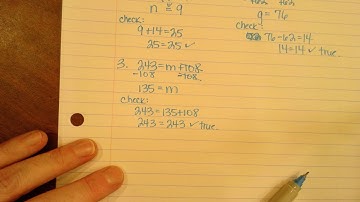 n = 9
check:
9+14=25
25=25 ✓
3. 243=m+108
-108 -108
135=m
check:
243=135+108
243=243 ✓ true.
g=76
check:
76-62=14
14=14 ✓ true.